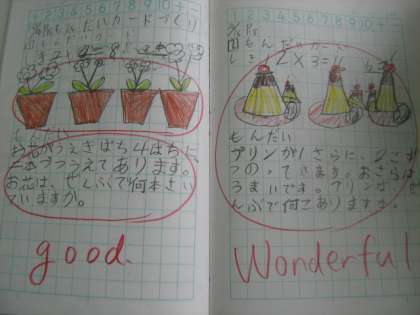 1 2 3 4 5 6 7 8 9 10 + -
もんだいカードづくり
もんだい
お花がうえきばち4はちに
ずつうえてあります。
お花は、ぜんぶで何本さい
ていますか。
good.
1 2 3 4 5 6 7 8 9 10 + -
もんだいカード
しき 2×3=
もんだい
プリンが1さらに、2こず
つのってきます。おさらは
3まいです。プリンはぜ
んぶで何こありますか。
Wonderful